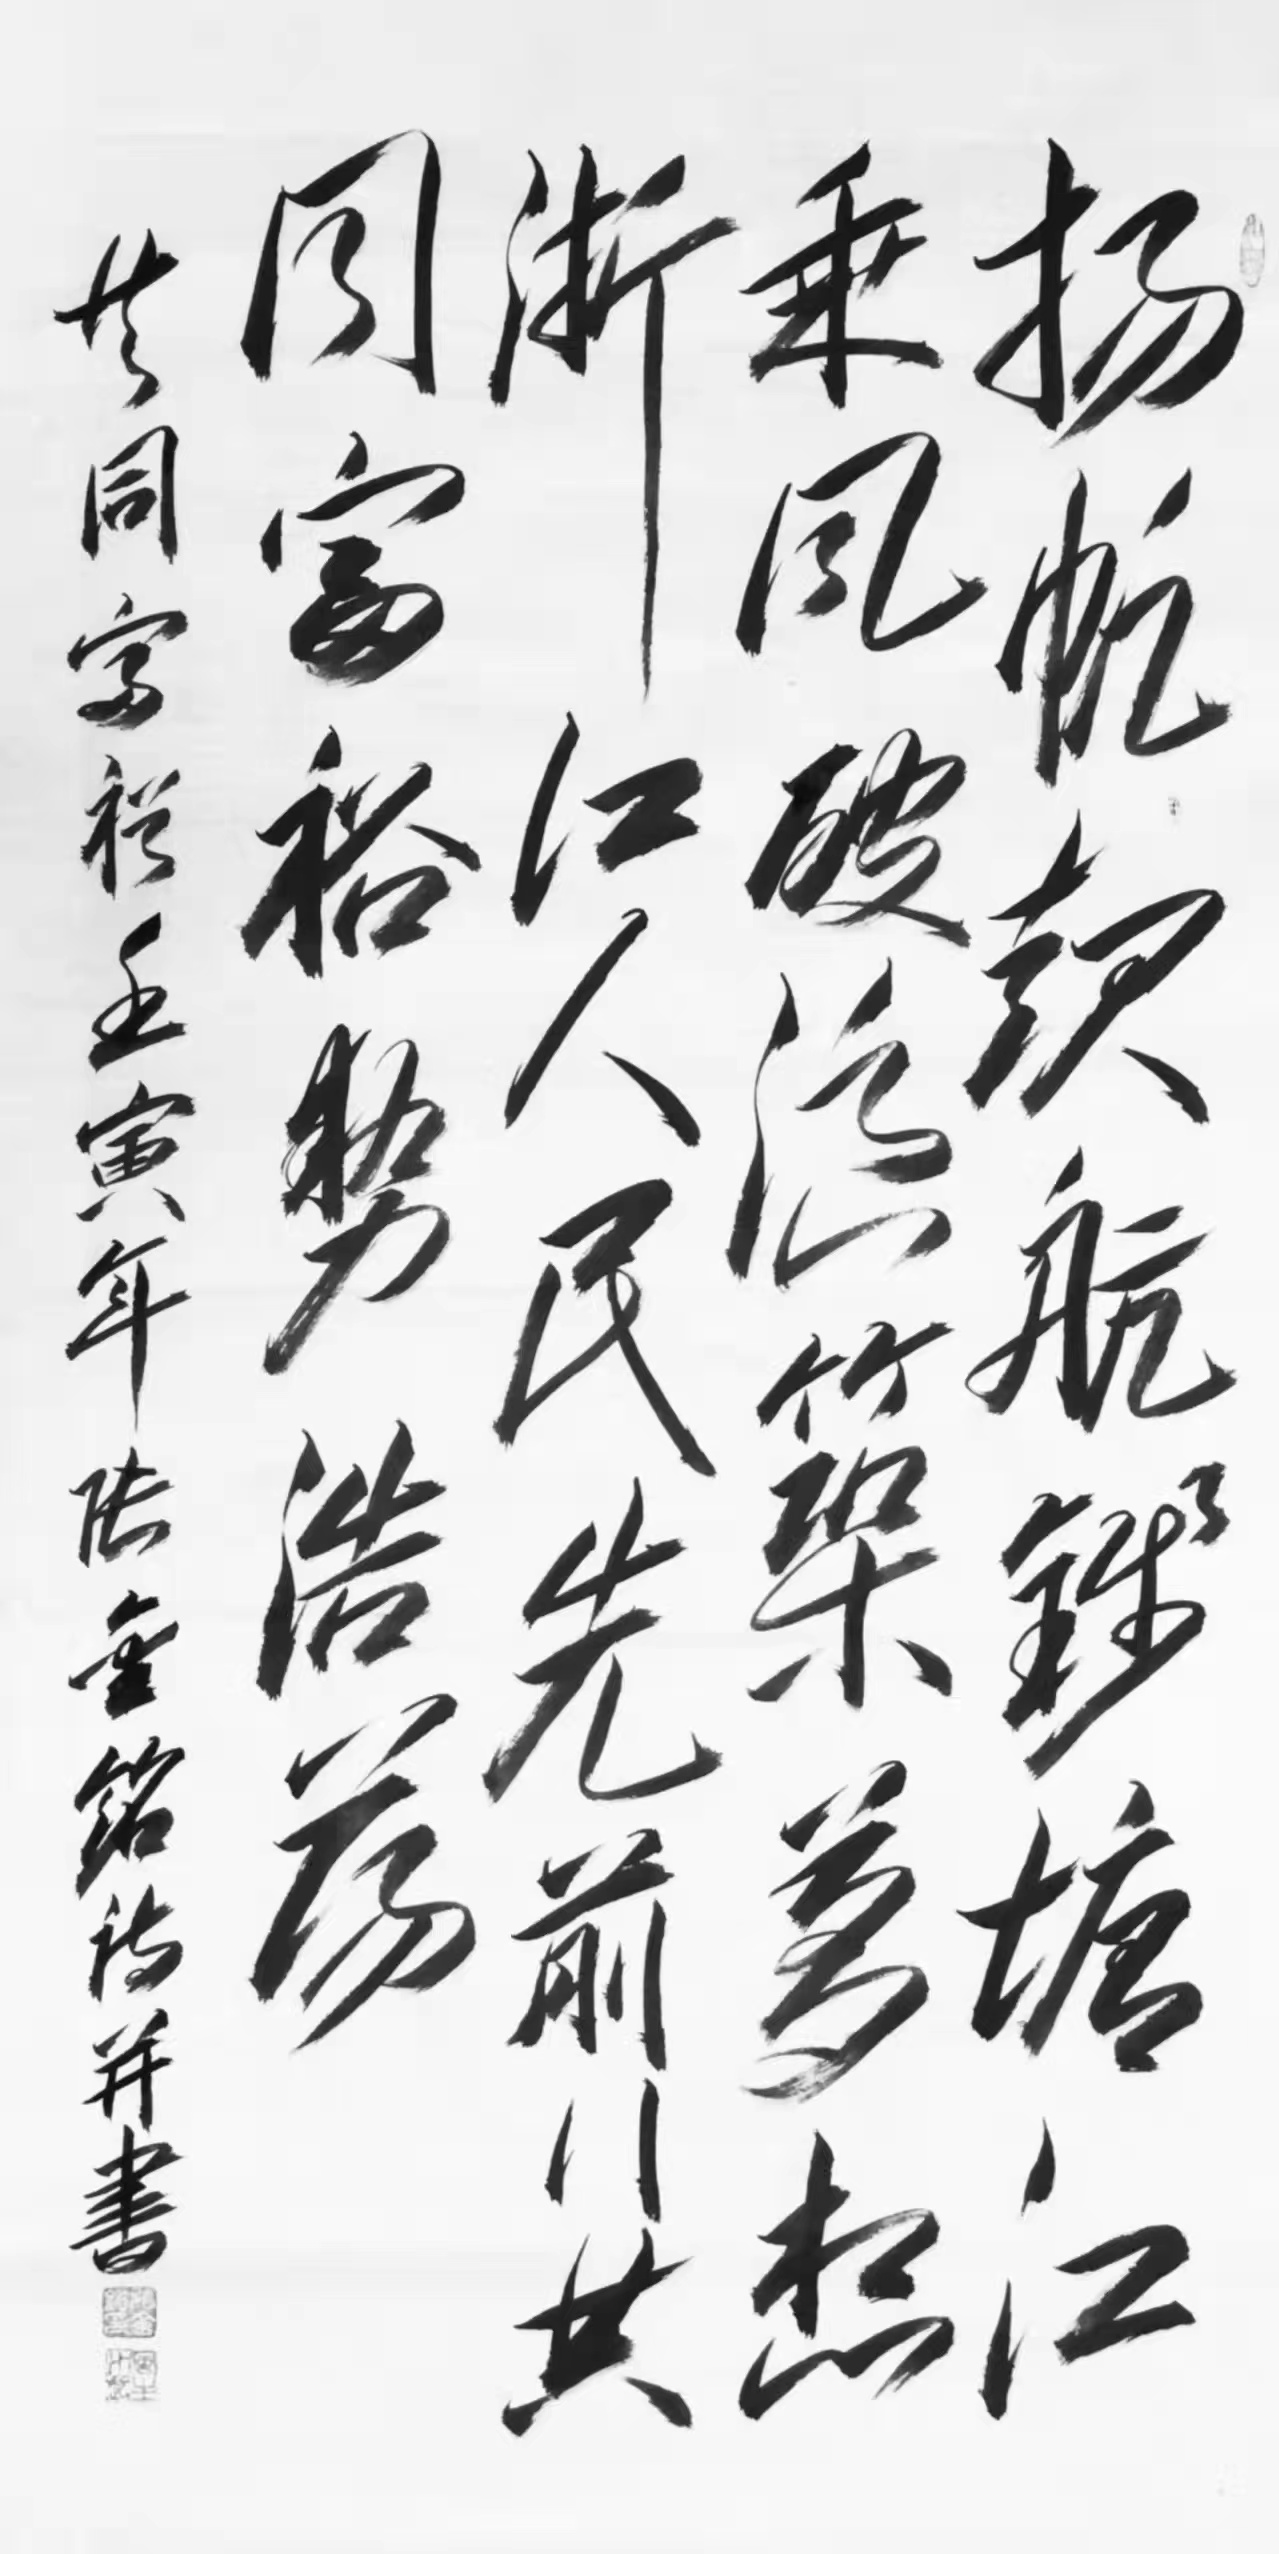 扬帆起航錢塘江
乘风破浪築夢想
浙江人民先前行共
同富裕势浩荡
共同富裕壬寅年陆金銘诗并書